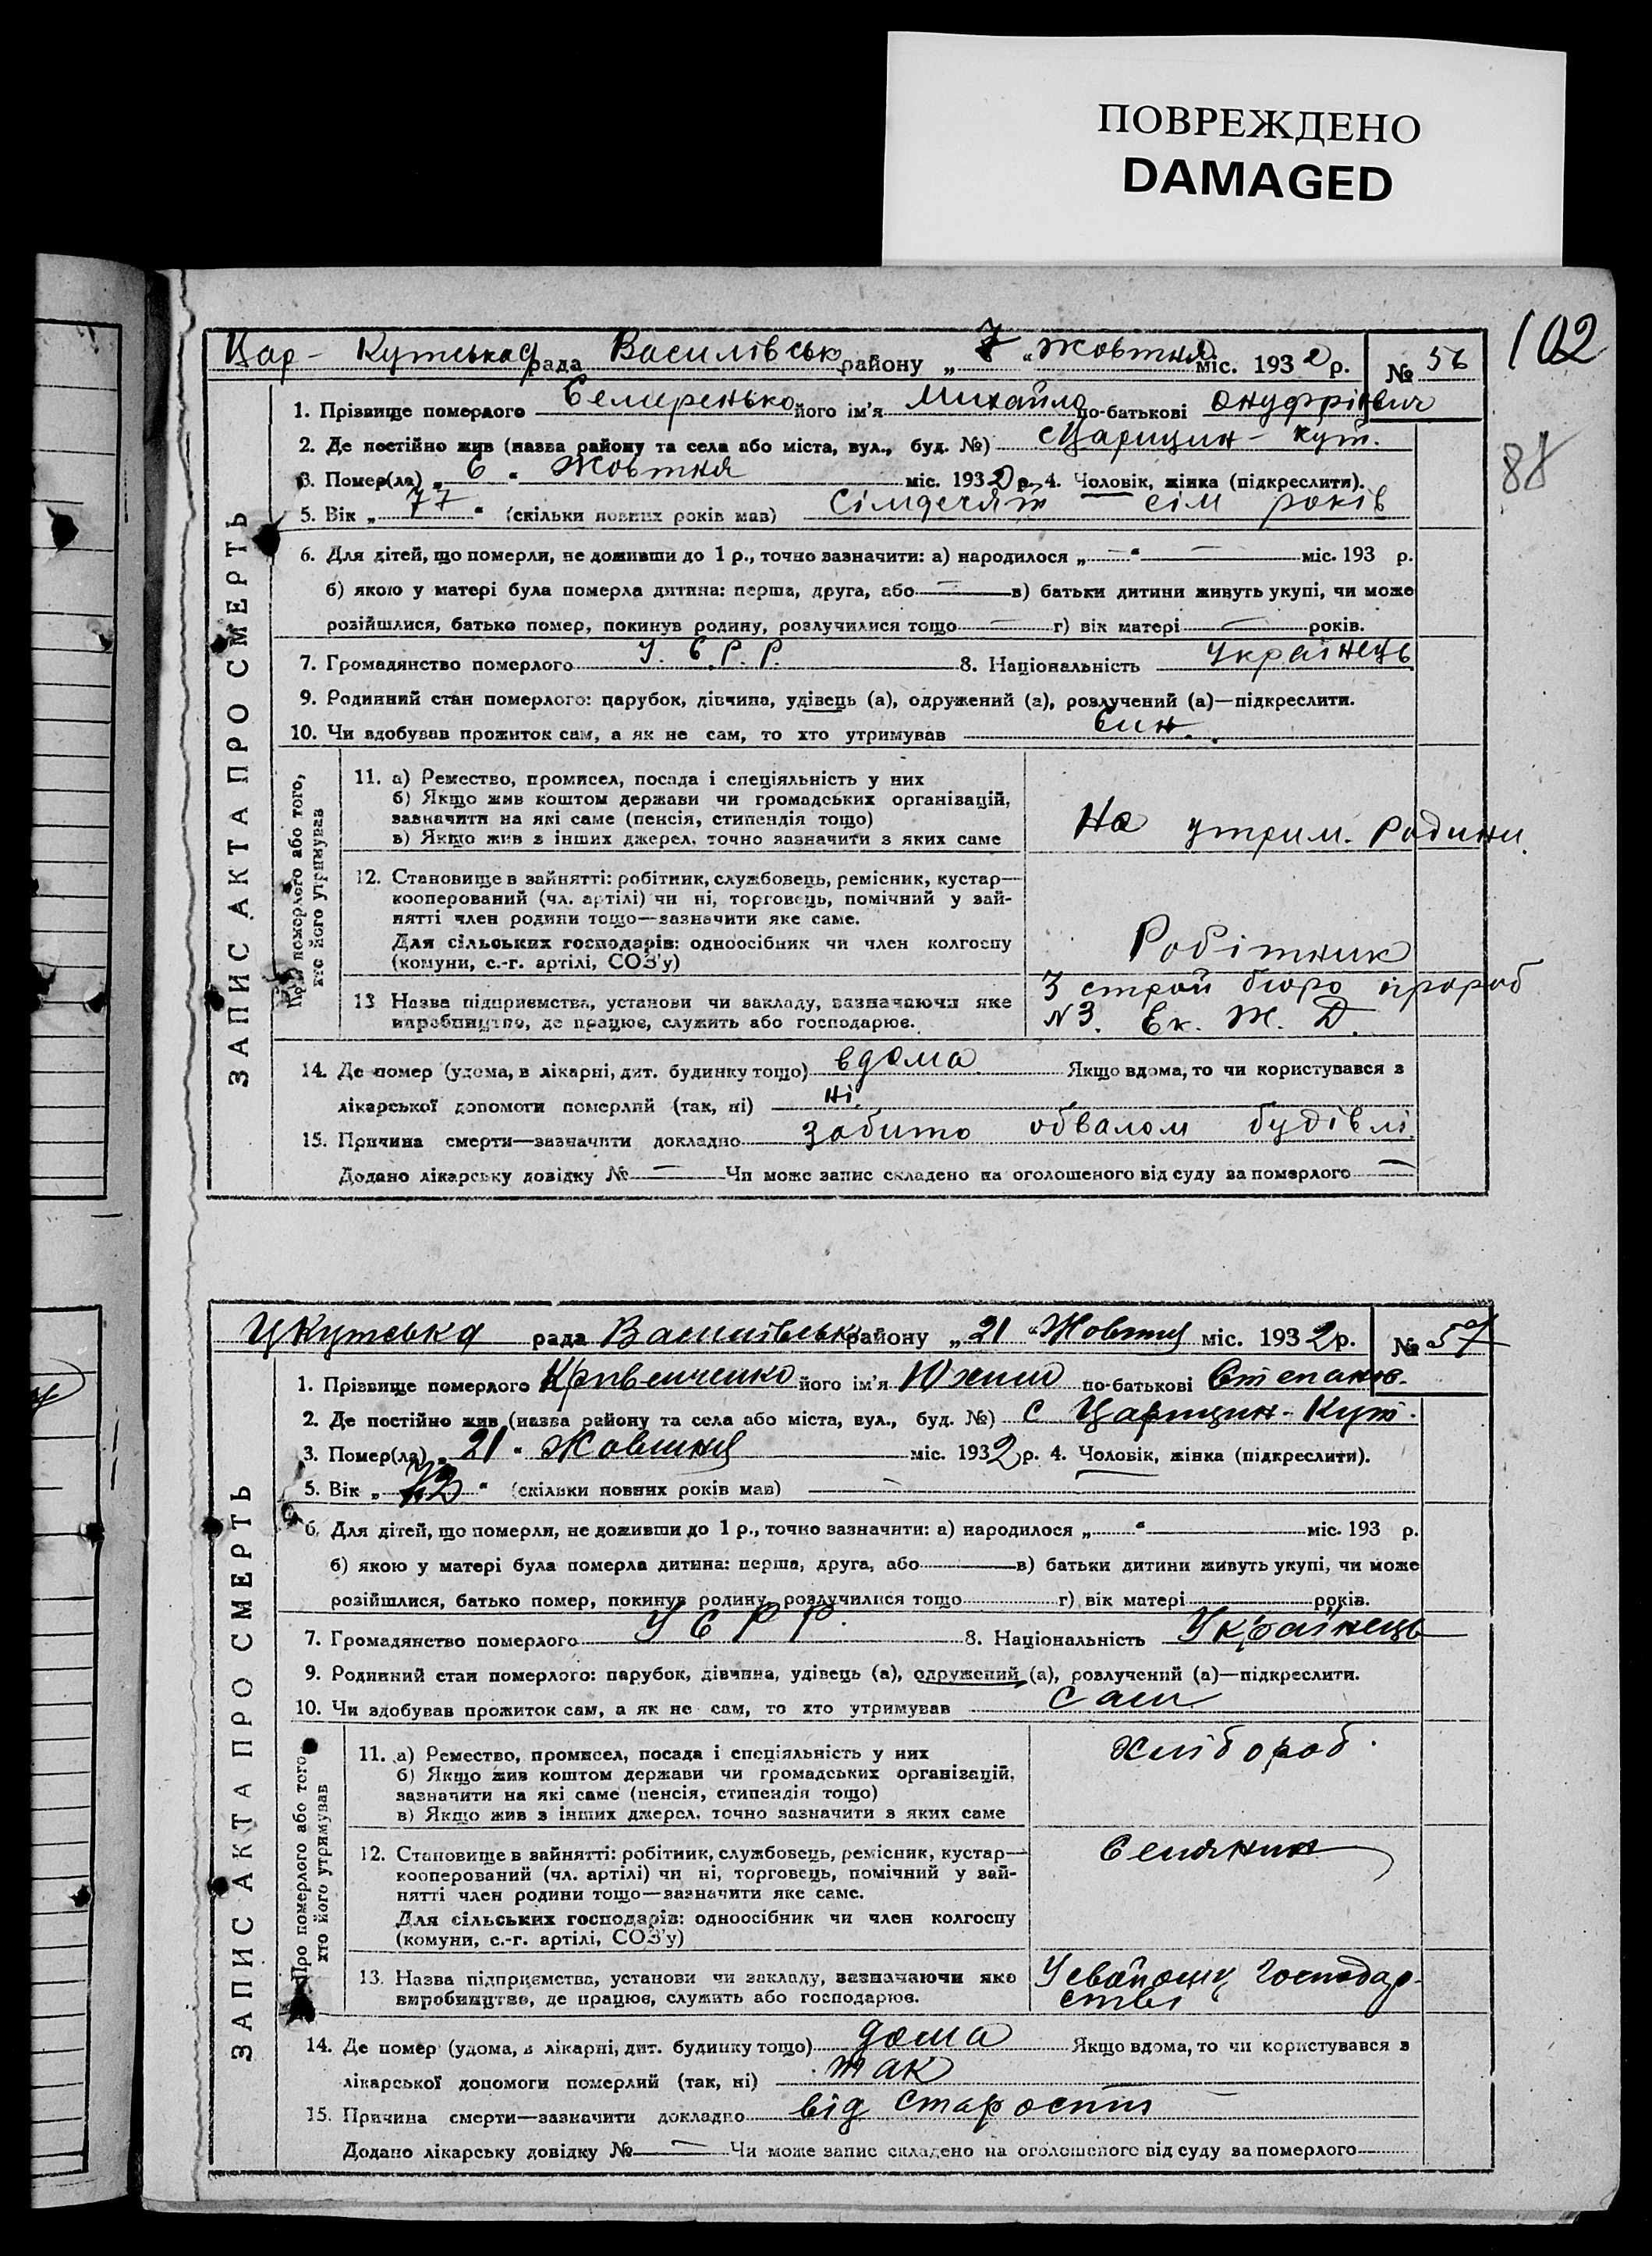 ПОВРЕЖДЕНО
DAMAGED
102
88
ЗАПИС АКТА ПРО СМЕРТЬ
Цар- Кутська рада Василівськ району „ 7 “ Жовтня міс. 1932 р. № 56
1. Прізвище померлого його ім'я Михайло по-батькові Онуфрієвич
2. Де постійно жив (назва району та села або міста, вул., буд. №) с Царицин - Кут.
3. Помер(ла) „ 6 “ Жовтня міс. 1932 р. 4. Чоловік, жінка (підкреслити).
5. Вік „ 77 “ (скільки повних років мав) Сімдесят сім років
6. Для дітей, що померли, не доживши до 1 р., точно зазначити: а) народилося „ — “ — міс. 193 р.
б) якою у матері була померла дитина: перша, друга, або — в) батьки дитини живуть укупі, чи може
розійшлися, батько помер, покинув родину, розлучилися тощо — г) вік матері — років.
7. Громадянство померлого У. С. Р. Р. 8. Національність Українець
9. Родинний стан померлого: парубок, дівчина, удівець (а), одружений (а), розлучений (а)—підкреслити.
10. Чи здобував прожиток сам, а як не сам, то хто утримував Син.
Про померлого або того,
хто його утримував
11. а) Ремество, промисел, посада і спеціяльність у них
б) Якщо жив коштом держави чи громадських організацій,
зазначити на які саме (пенсія, стипендія тощо)
в) Якщо жив з інших джерел, точно зазначити з яких саме
На утрим. Родини.
12. Становище в зайнятті: робітник, службовець, ремісник, кустар—
кооперований (чл. артілі) чи ні, торговець, помічний у зай-
нятті член родини тощо—зазначити яке саме.
Для сільських господарів: одноосібник чи член колгоспу
(комуни, с.-г. артілі, СОЗ'у)
Робітник
13 Назва підприємства, установи чи закладу, зазначаючи яке
виробництво, де працює, служить або господарює.
3 строй бюро прораб
№ 3. Ек. Ж. Д.
14. Де помер (удома, в лікарні, дит. будинку тощо) вдома Якщо вдома, то чи користувався з
лікарської допомоги померлий (так, ні) ні.
15. Причина смерти—зазначити докладно Забито обвалом будівлі.
Додано лікарську довідку № — Чи може запис складено на оголошеного від суду за померлого —
ЗАПИС АКТА ПРО СМЕРТЬ
ЦКутська рада Василівськ району „ 21 “ Жовтня міс. 1932 р. № 57
1. Прізвище померлого Кривенченко його ім'я Юхим по-батькові Степанов.
2. Де постійно жив (назва району та села або міста, вул., буд. №) с Царицин - Кут.
3. Помер(ла) „ 21 “ Жовтня міс. 1932 р. 4. Чоловік, жінка (підкреслити).
5. Вік „ “ (скільки повних років мав) —
6. Для дітей, що померли, не доживши до 1 р., точно зазначити: а) народилося „ “ міс. 193 р.
б) якою у матері була померла дитина: перша, друга, або в) батьки дитини живуть укупі, чи може
розійшлися, батько помер, покинув родину, розлучилися тощо г) вік матері років.
7. Громадянство померлого У С Р Р. 8. Національність Українець
9. Родинний стан померлого: парубок, дівчина, удівець (а), одружений (а), розлучений (а)—підкреслити.
10. Чи здобував прожиток сам, а як не сам, то хто утримував Сам
Про померлого або того
хто його утримував
11. а) Ремество, промисел, посада і спеціяльність у них
б) Якщо жив коштом держави чи громадських організацій,
зазначити на які саме (пенсія, стипендія тощо)
в) Якщо жив з інших джерел, точно зазначити з яких саме
Хлібороб.
12. Становище в зайнятті: робітник, службовець, ремісник, кустар—
кооперований (чл. артілі) чи ні, торговець, помічний у зай-
нятті член родини тощо—зазначити яке саме.
Для сільських господарів: одноосібник чи член колгоспу
(комуни, с.-г. артілі, СОЗ'у)
Селянин
13. Назва підприємства, установи чи закладу, зазначаючи яке
виробництво, де працює, служить або господарює.
У свойому господар-
стві
14. Де помер (удома, в лікарні, дит. будинку тощо) дома Якщо вдома, то чи користувався з
лікарської допомоги померлий (так, ні) так
15. Причина смерти—зазначити докладно від старости
Додано лікарську довідку № — Чи може запис складено на оголошеного від суду за померлого